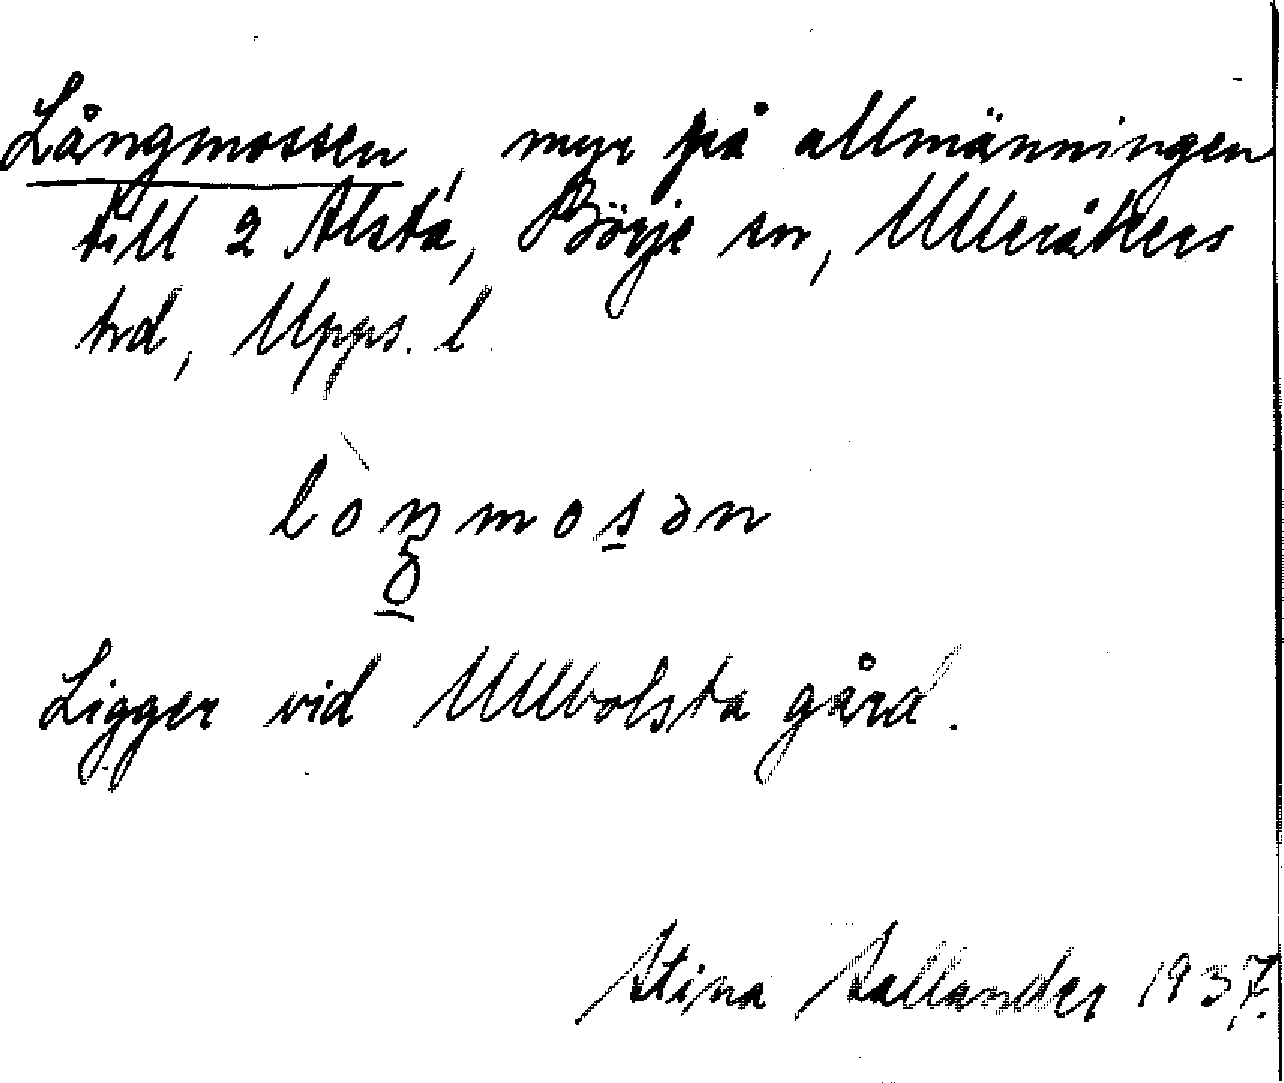 Långmossen, myr på allmänningen
till 2 Alsta, Börje sn, Ulleråkers
hrd, Upps. l.
lòŋmosən
Ligger vid Ullbolsta gård.
Stina Sallander 1937.